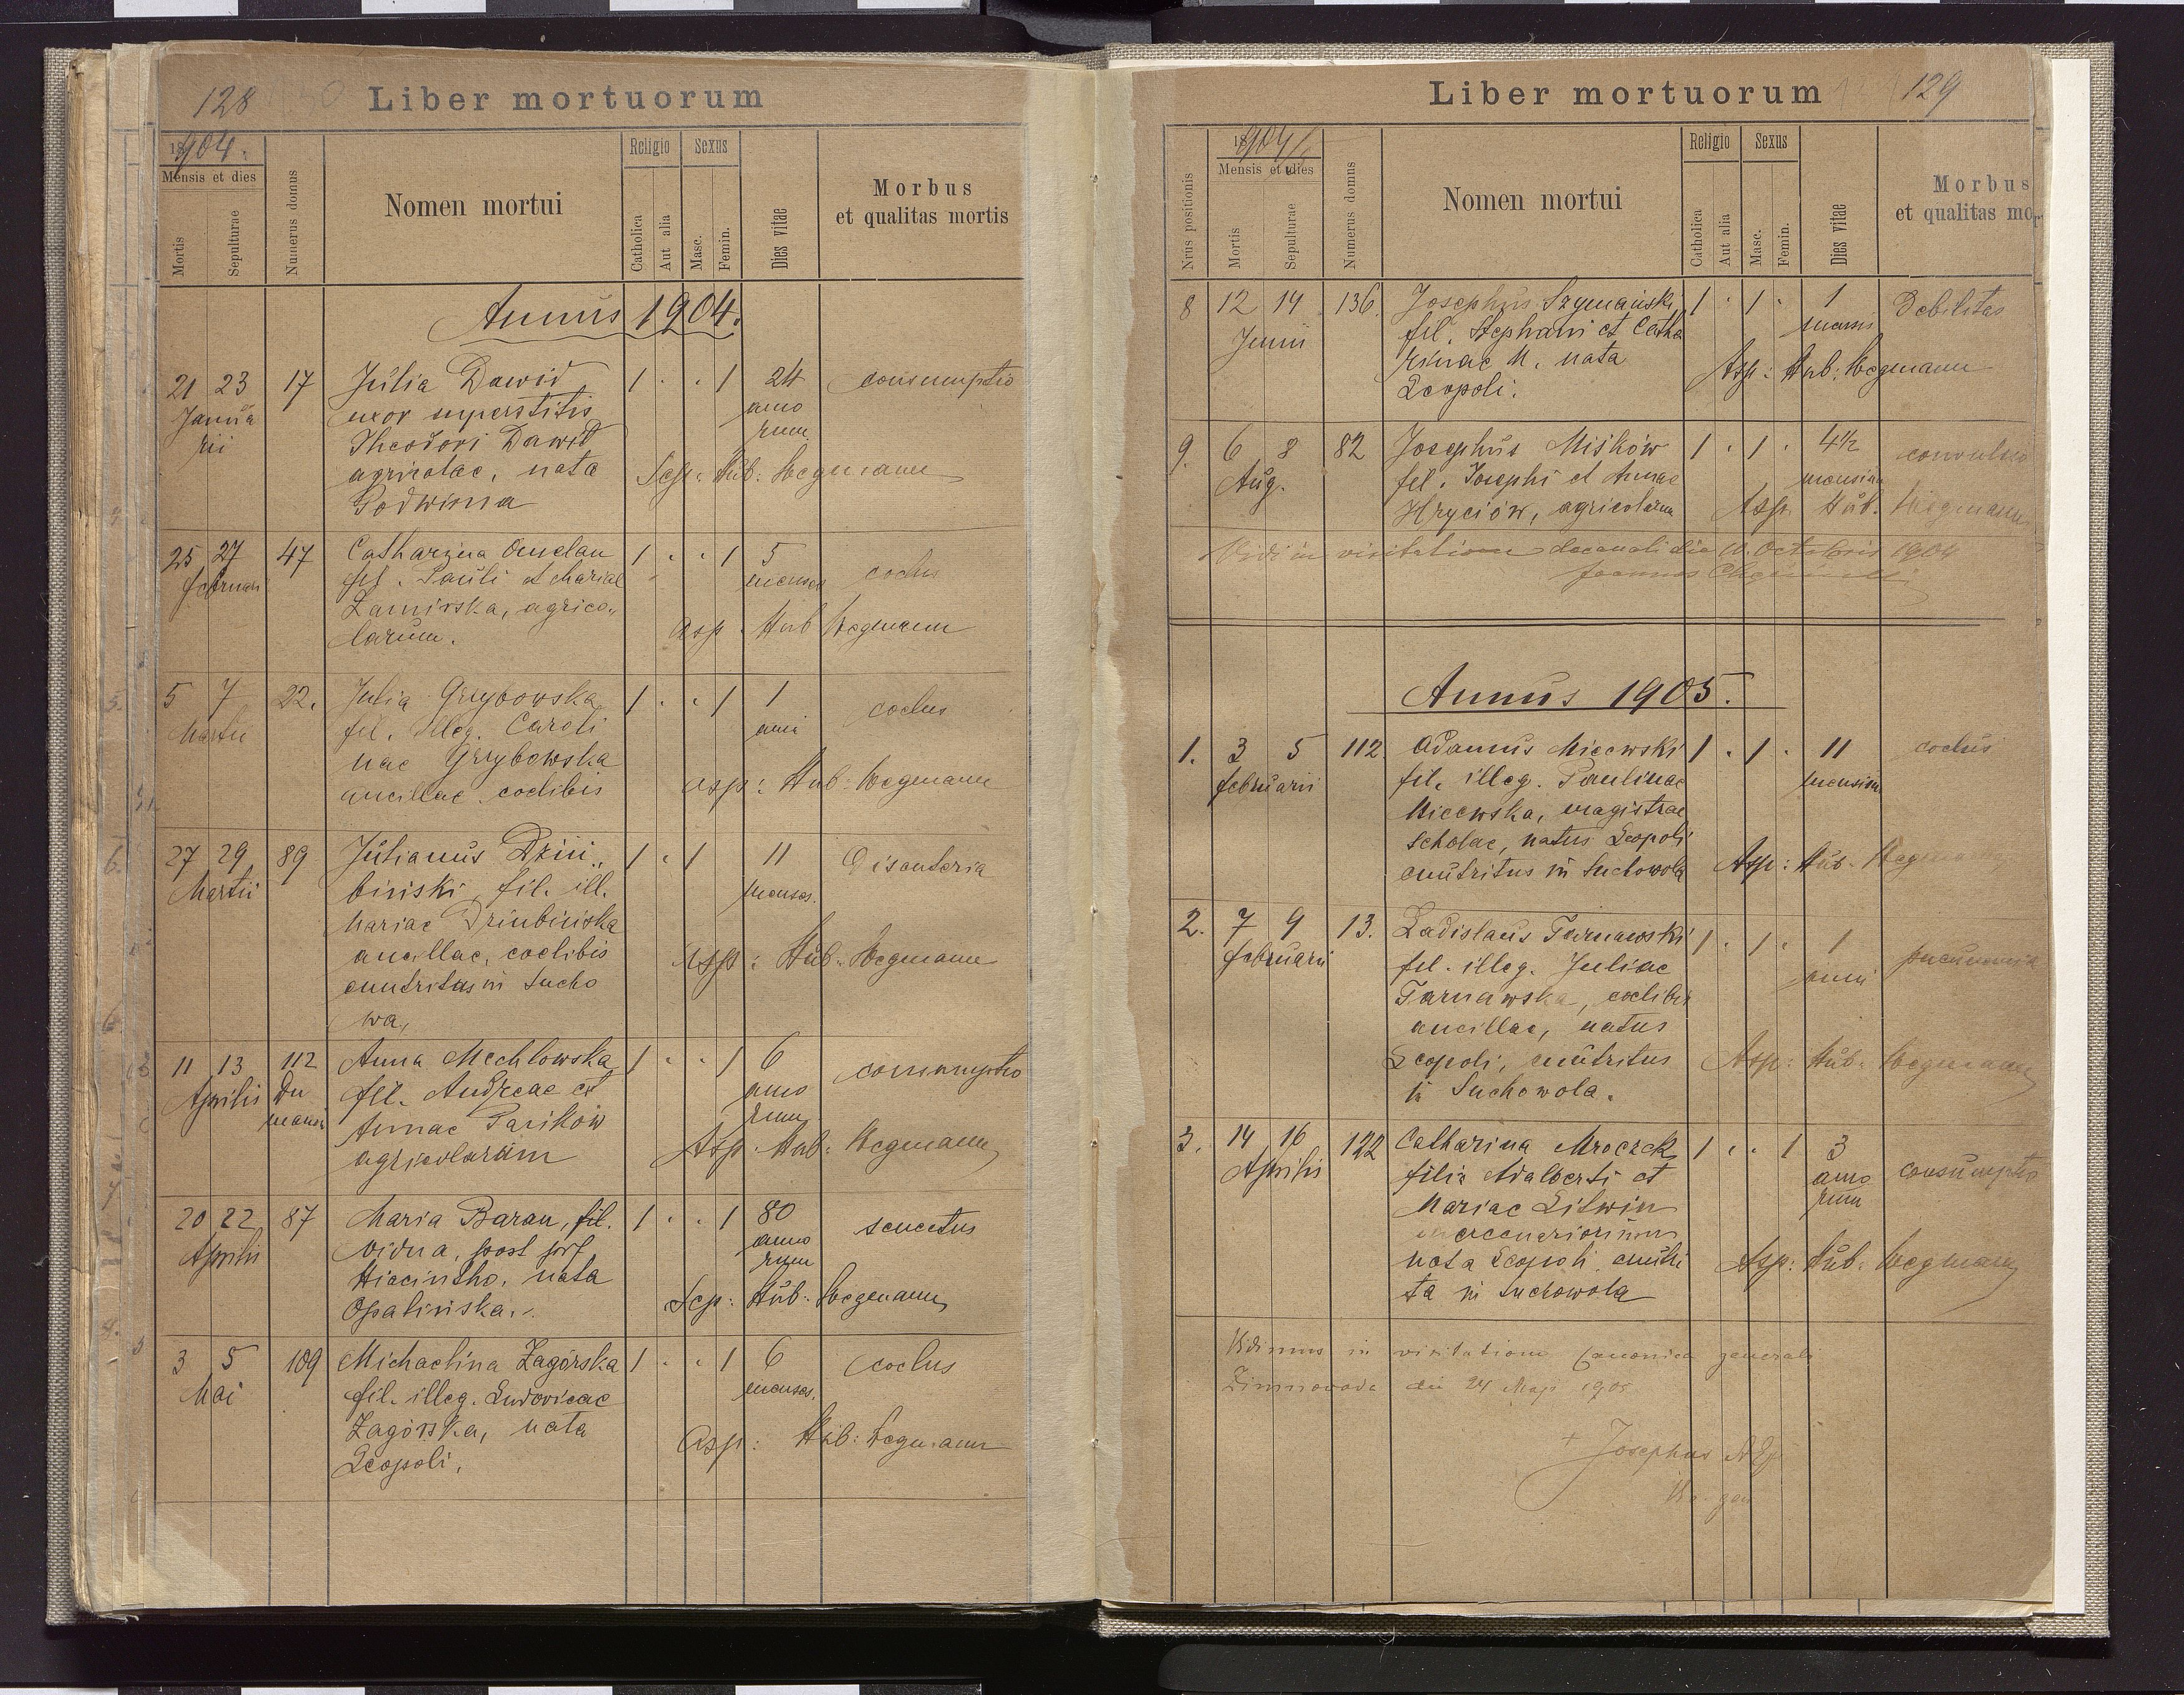 128
Liber mortuorum
1904.
Mensis et dies
Mortis
Sepulturae
Numerus domus
Nomen mortui
Religio
Catholica
Aut alia
Sexus
Masc.
Femin.
Dies vitae
Morbus
et qualitas mortis
Annus 1904.
21 23 17 Julia Dawid 1 . . 1 24 consumptio
Janua uxor superstitis anno
rii Theodori Dawid rum
agricolae, nata Sep: Hub: Wegmann
Godwinna
25 27 47 Catharina Omelan 1 . . 1 5
februari fil. Pauli et Mariae menses coclus
Zamirska, agrico„
larum. Asp. Hub Wegmann
5 7 22. Julia Grzybowska 1 . . 1 1 coclus
Martii fil. illeg. Caroli anni
nae Grzybowska
ancillae coelibis asp: Hub: Wegmann
27 29 89 Julianus Dziu„ 1 . 1 11 Disenteria
Martii binski fil. ill. menses.
Mariae Dziubinska
ancillae, coelibis Asp: Hub: Wegmann
enutritus in Sucho
wa,
11 13 112 Anna Mechlowska 1 . . 1 6 consumptio
Aprilis fil. Andreae et anno
Annae Parikow rum
agricolarum Asp: Hub: Wegmann
20 22 87 Maria Baran, fil. 1 . . 1 80 senectus
Aprilis vidua, post anno
Hiacintho, nata rum
Opalinska. Sep: Hub: Wegmann
3 5 109 Michaelina Zagórska 1 . . 1 6 coclus
Mai fil. illeg. Ludovicae menses.
Zagórska, nata Asp: Hub: Wegmann
Leopoli.
Liber mortuorum
129
1904/5
Nrus positionis
Mensis et dies
Mortis
Sepulturae
Numerus domus
Nomen mortui
Religio
Catholica
Aut alia
Sexus
Masc.
Femin.
Dies vitae
Morbus
et qualitas mor
8 12 14 136. Josephus Szymański 1 . 1 . 1 Debilitas
Junii fil. Stephani et Catha mensis
rinae M. nata Asp: Hub: Wegmann
Leopoli.
9. 6 8 82 Josephus Miśków 1 . 1 . 4½ convulsio
Aug. fil. Josephi et Annae mensium
Hryciów, agricolarum Asp. Hub. Wegmann
Vidi in visitatione decanali die 11. Octobris 1904
Joannes
Annus 1905.
1. 3 5 112. Adamus Micewski 1 . 1 . 11 coclus
februarii fil. illeg. Paulinae mensium
Micewska, magistrae
scholae, natus Leopoli
enutritus in Suchowola Asp: Hub: Wegmann
2. 7 9 13. Ladislaus Tarnawski 1 . 1 . 1 pneumonia
februarii fil. illeg. Juliae anni
Tarnawska, coelibis
ancillae, natus
Leopoli, enutritus Asp: Hub: Wegmann
in Suchowola.
3. 14 16 122 Catharina Mroczek 1 . . 1 3 consumptio
Aprilis filia Adalberti et anno
Mariae Litwin rum
mercenariorum
nata Leopoli, enutri Asp: Hub: Wegmann
ta in Suchowola
Vidimus in visitatione Canonica generali
Zimnawoda die 24 Maji 1905
+ Josephus